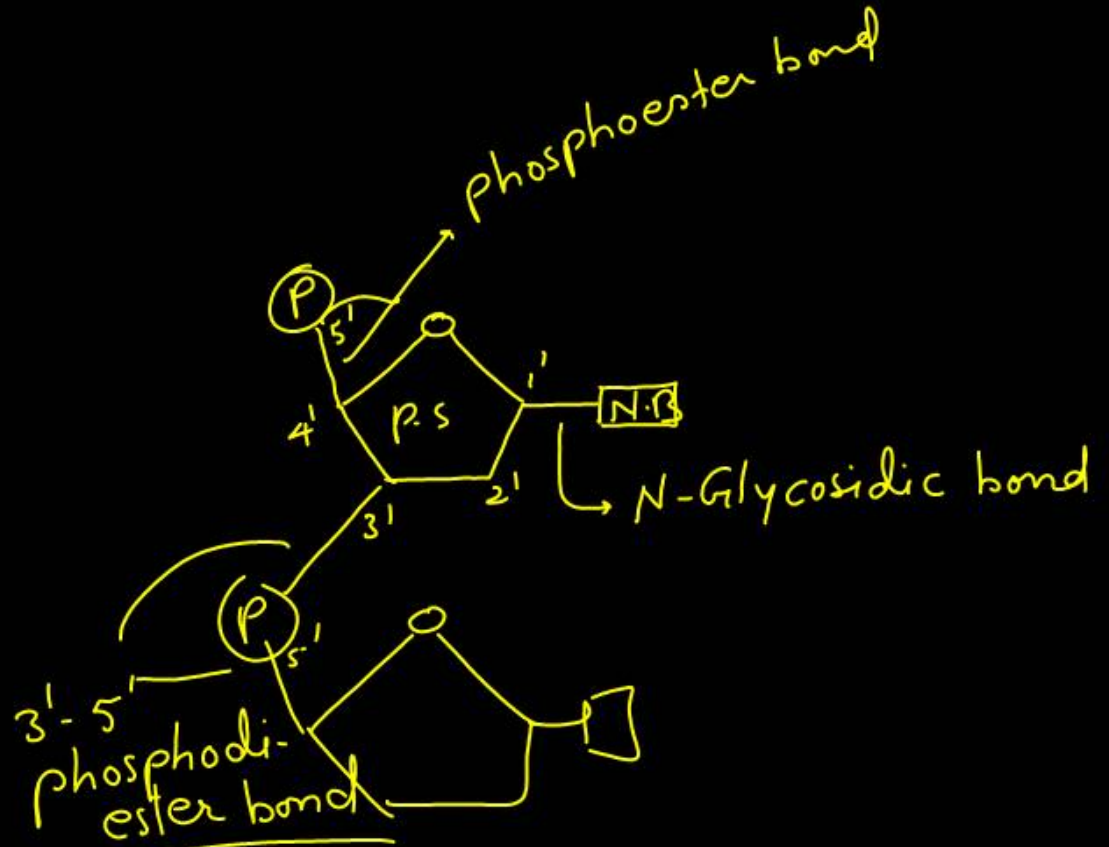 phosphoester bond
P
5'
O
1'
N.B
4'
P.S
2'
N-Glycosidic bond
3'
P
5'
O
3'-5'
phosphodi-
ester bond